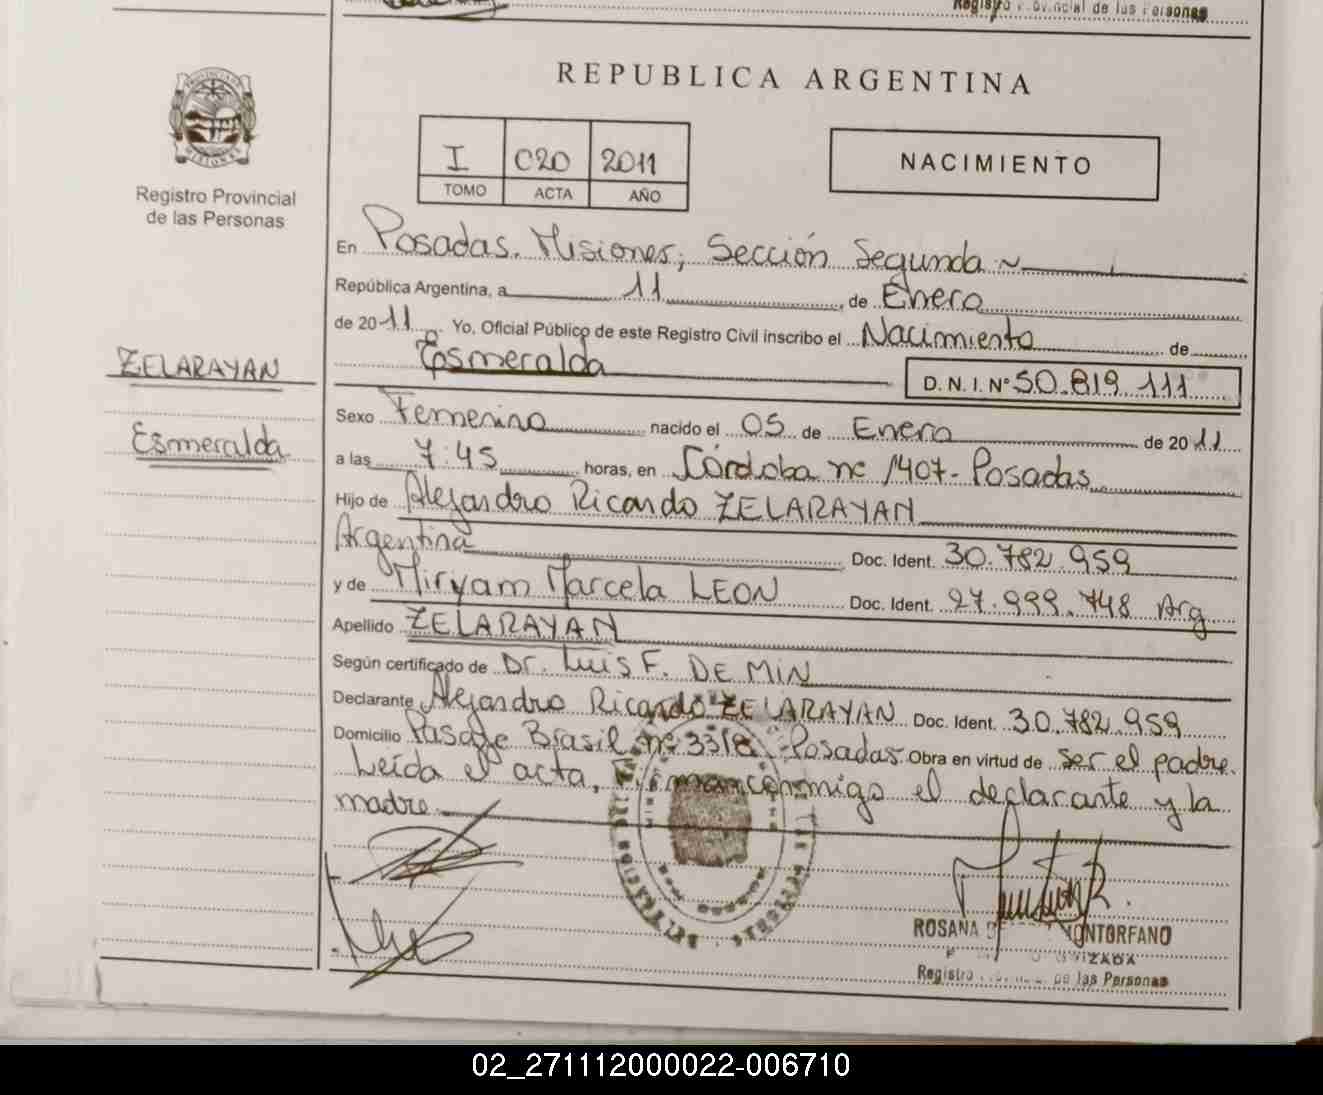 Registro Provincial de las Personas
REPUBLICA ARGENTINA
I C20 2011
TOMO ACTA AÑO
NACIMIENTO
Registro Provincial
de las Personas
En Posadas. Misiones, Sección Segunda
República Argentina, a 11 de Enero
de 2011. Yo, Oficial Público de este Registro Civil inscribo el Nacimiento de
Esmeralda
D. N. I. Nº 50.819.111
ZELARAYAN
Esmeralda
Sexo Femenino nacido el 05 de Enero de 2011
a las 7:45 horas, en Córdoba nº 1407- Posadas
Hijo de Alejandro Ricardo ZELARAYAN
Argentina Doc. Ident. 30.782.959
y de Miryam Marcela LEON Doc. Ident. 27.999.748 Arg
Apellido ZELARAYAN
Según certificado de Dr. Luis F. DE MIN
Declarante Alejandro Ricardo ZELARAYAN Doc. Ident. 30.782.959
Domicilio Pasaje Brasil nº 3318 - Posadas- Obra en virtud de ser el padre.
Leída el acta, firman conmigo el declarante y la
madre.
ROSANA MONTORFANO
Registro de las Personas
02_271112000022-006710